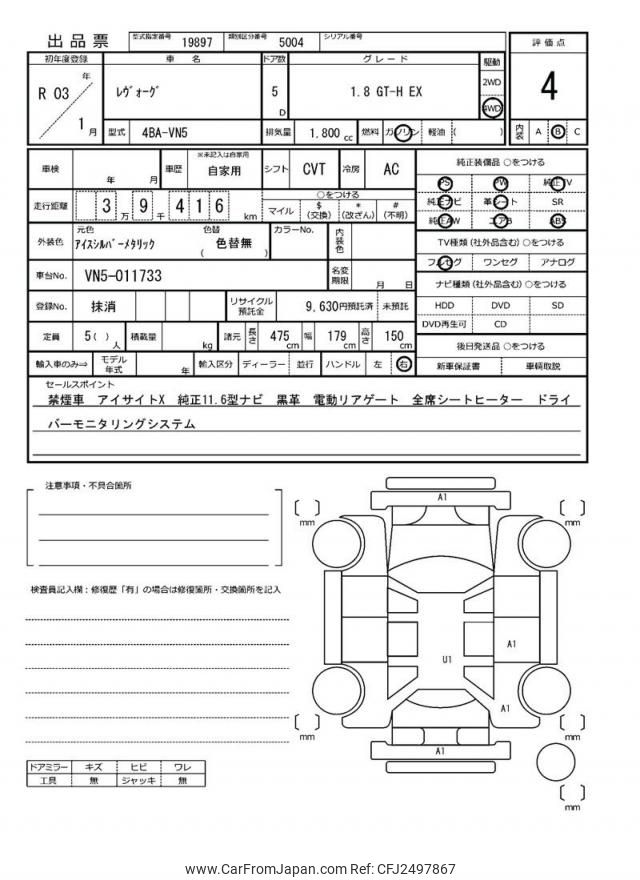 出品票 型式指定番号 19897 類別区分番号 5004 シリアル番号
初年度登録 車名 ドア数 グレード 駆動 評価点
R 03 年 1 月 ﾚｳﾞｫｰｸﾞ 5 D 1.8 GT-H EX 2WD 4WD 4
型式 4BA-VN5 排気量 1,800 cc 燃料 ガソリン 軽油 ( ) 内装 A B C
車検 年 月 車歴 ※未記入は自家用 自家用 シフト CVT 冷房 AC
純正装備品 ○をつける
PS PW 純正TV
純正ナビ 革シート SR
純正AW エアB ABS
走行距離 3 万 9 千 4 1 6 km ○をつける
マイル $ (交換) * (改ざん) # (不明)
外装色 元色 ｱｲｽｼﾙﾊﾞｰﾒﾀﾘｯｸ 色替 ( 色替無 ) カラーNo. 内装色
TV種類 (社外品含む) ○をつける
フルセグ ワンセグ アナログ
車台No. VN5-011733 名変期限 月 日
ナビ種類 (社外品含む) ○をつける
登録No. 抹消 リサイクル預託金 9,630円預託済 未預託
HDD DVD SD
DVD再生可 CD
定員 5 ( ) 人 積載量 kg 諸元 長さ 475 cm 幅 179 cm 高さ 150 cm
後日発送品 ○をつける
輸入車のみ⇒ モデル年式 年 輸入区分 ディーラー 並行 ハンドル 左 右
新車保証書 車輌取説
セールスポイント
禁煙車 アイサイトX 純正11.6型ナビ 黒革 電動リアゲート 全席シートヒーター ドライ
バーモニタリングシステム
注意事項・不具合箇所
検査員記入欄：修復歴「有」の場合は修復箇所・交換箇所を記入
A1
[ ] mm
[ ] mm
A1
U1
A1
[ ] mm
[ ] mm
A1
[ ] mm
ドアミラー キズ ヒビ ワレ
工具 無 ジャッキ 無
www.CarFromJapan.com Ref: CFJ2497867